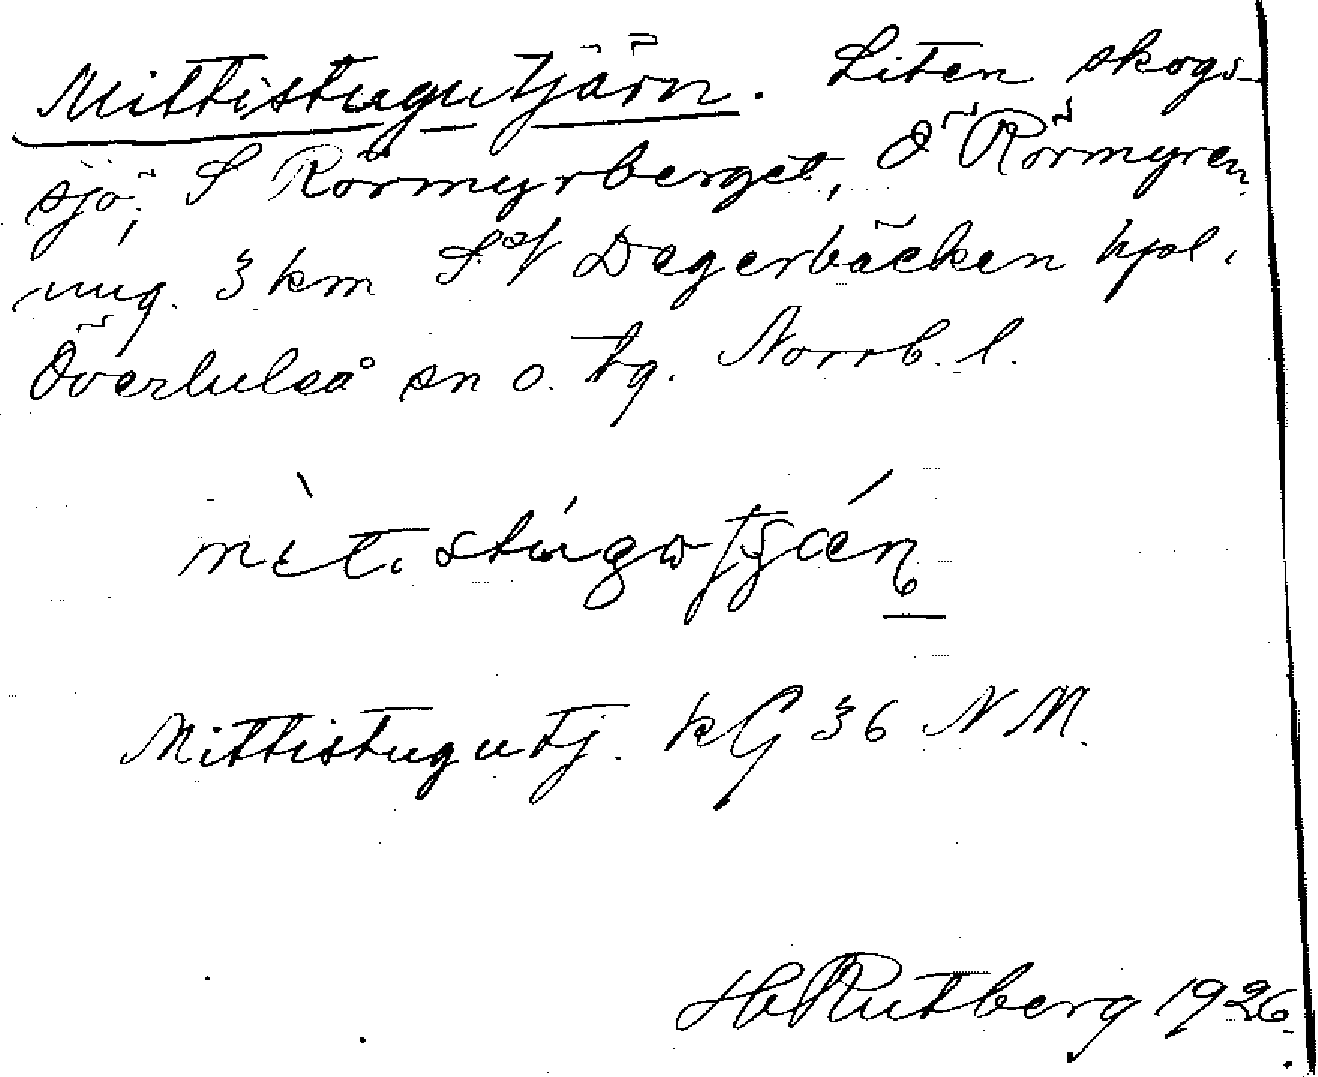 Mittistugutjärn. Liten skogs-
sjö, S Rörmyrberget, Ö Rörmyren,
ung. 3 km SV Degerbäcken hpl.
Överluleå sn o. tg. Norrb. l.
Mittistugutj. kG 36 NM.
H Rutberg 1926.